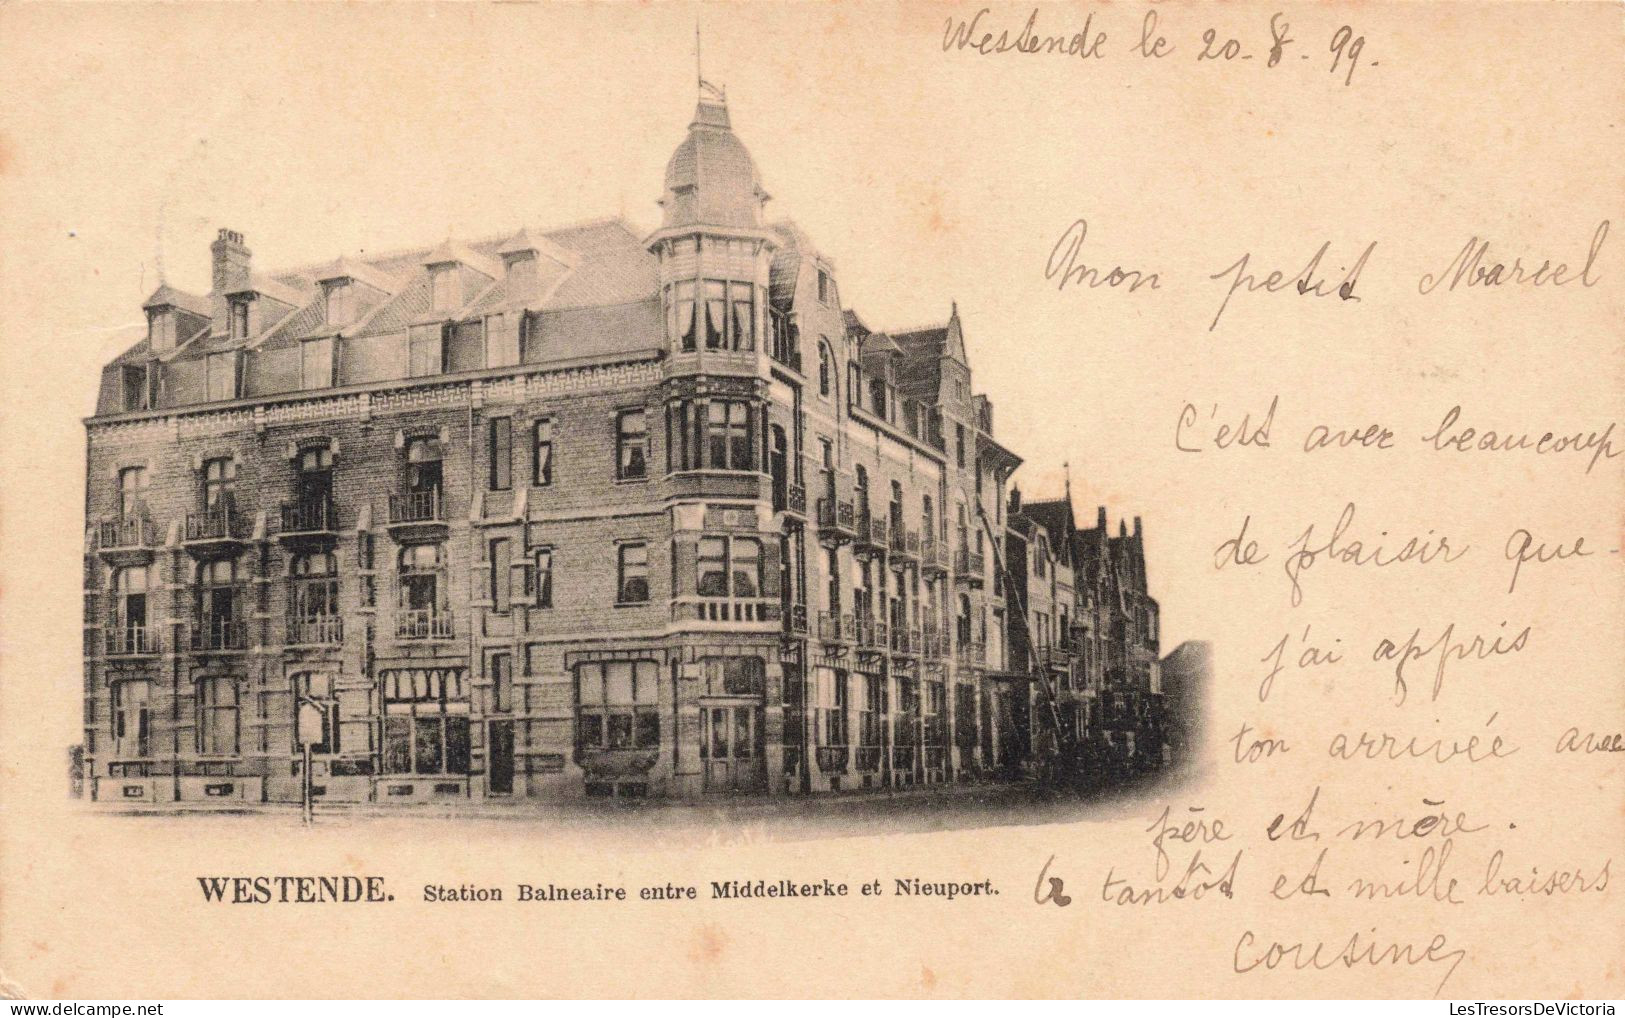 Westende le 20-8-99.
Mon petit Marcel
C'est avec beaucoup
de plaisir que
j'ai appris
ton arrivée avec
père et mère.
A tantôt et mille baisers
cousine
WESTENDE. Station Balneaire entre Middelkerke et Nieuport.
LesTresorsDeVictoria